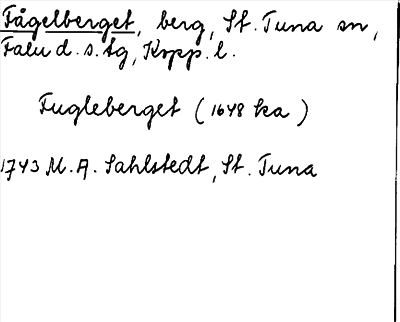 Fågelberget, berg, St. Tuna sn,
Falu d. s. tg, Kopp. l.
Fugleberget (1648 ka)
1743 M. A. Sahlstedt, St. Tuna